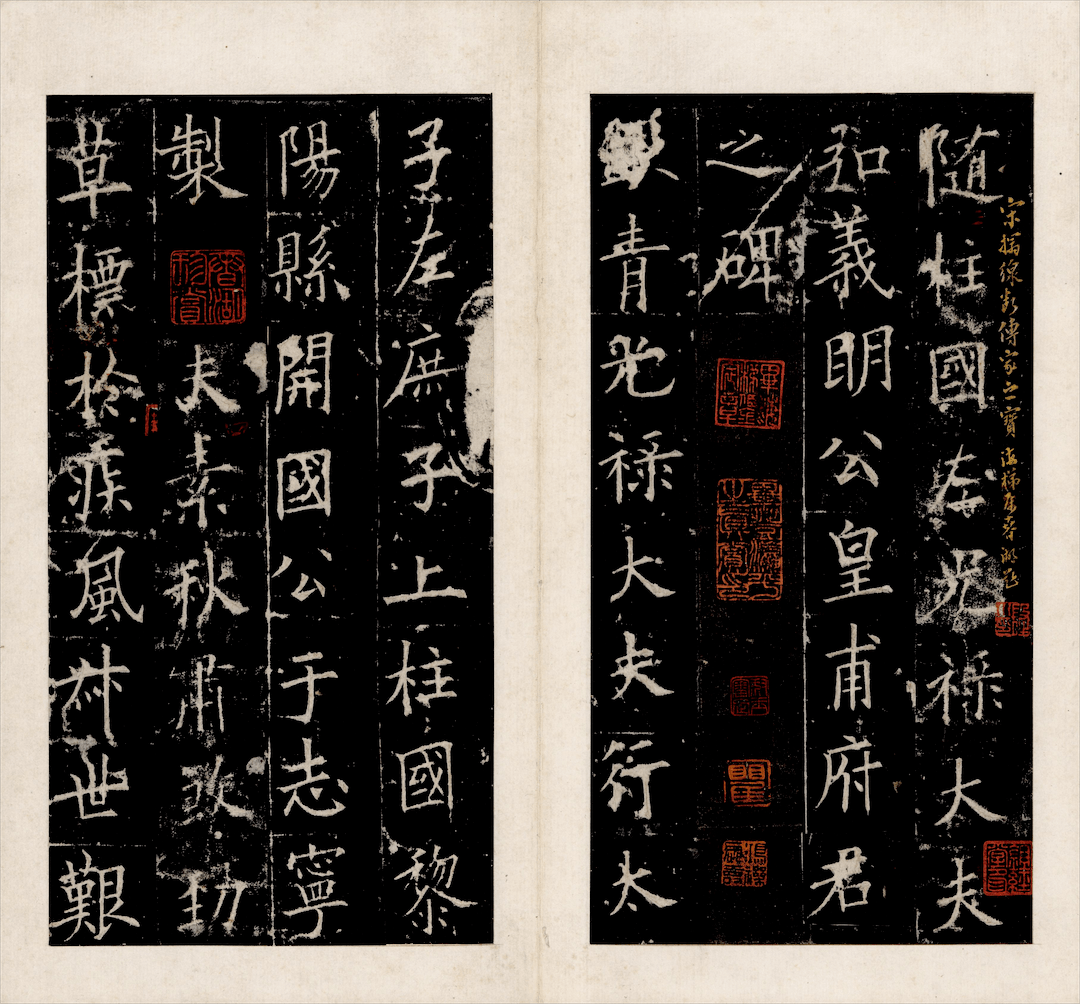 宋搨線斷傳家之寶
隨柱國左光祿大夫
弘義明公皇甫府君
之碑
青光祿大夫行太
子左庶子上柱國黎
陽縣開國公于志寧
製 夫素秋肅煞勁
草標於疾風叔世艱